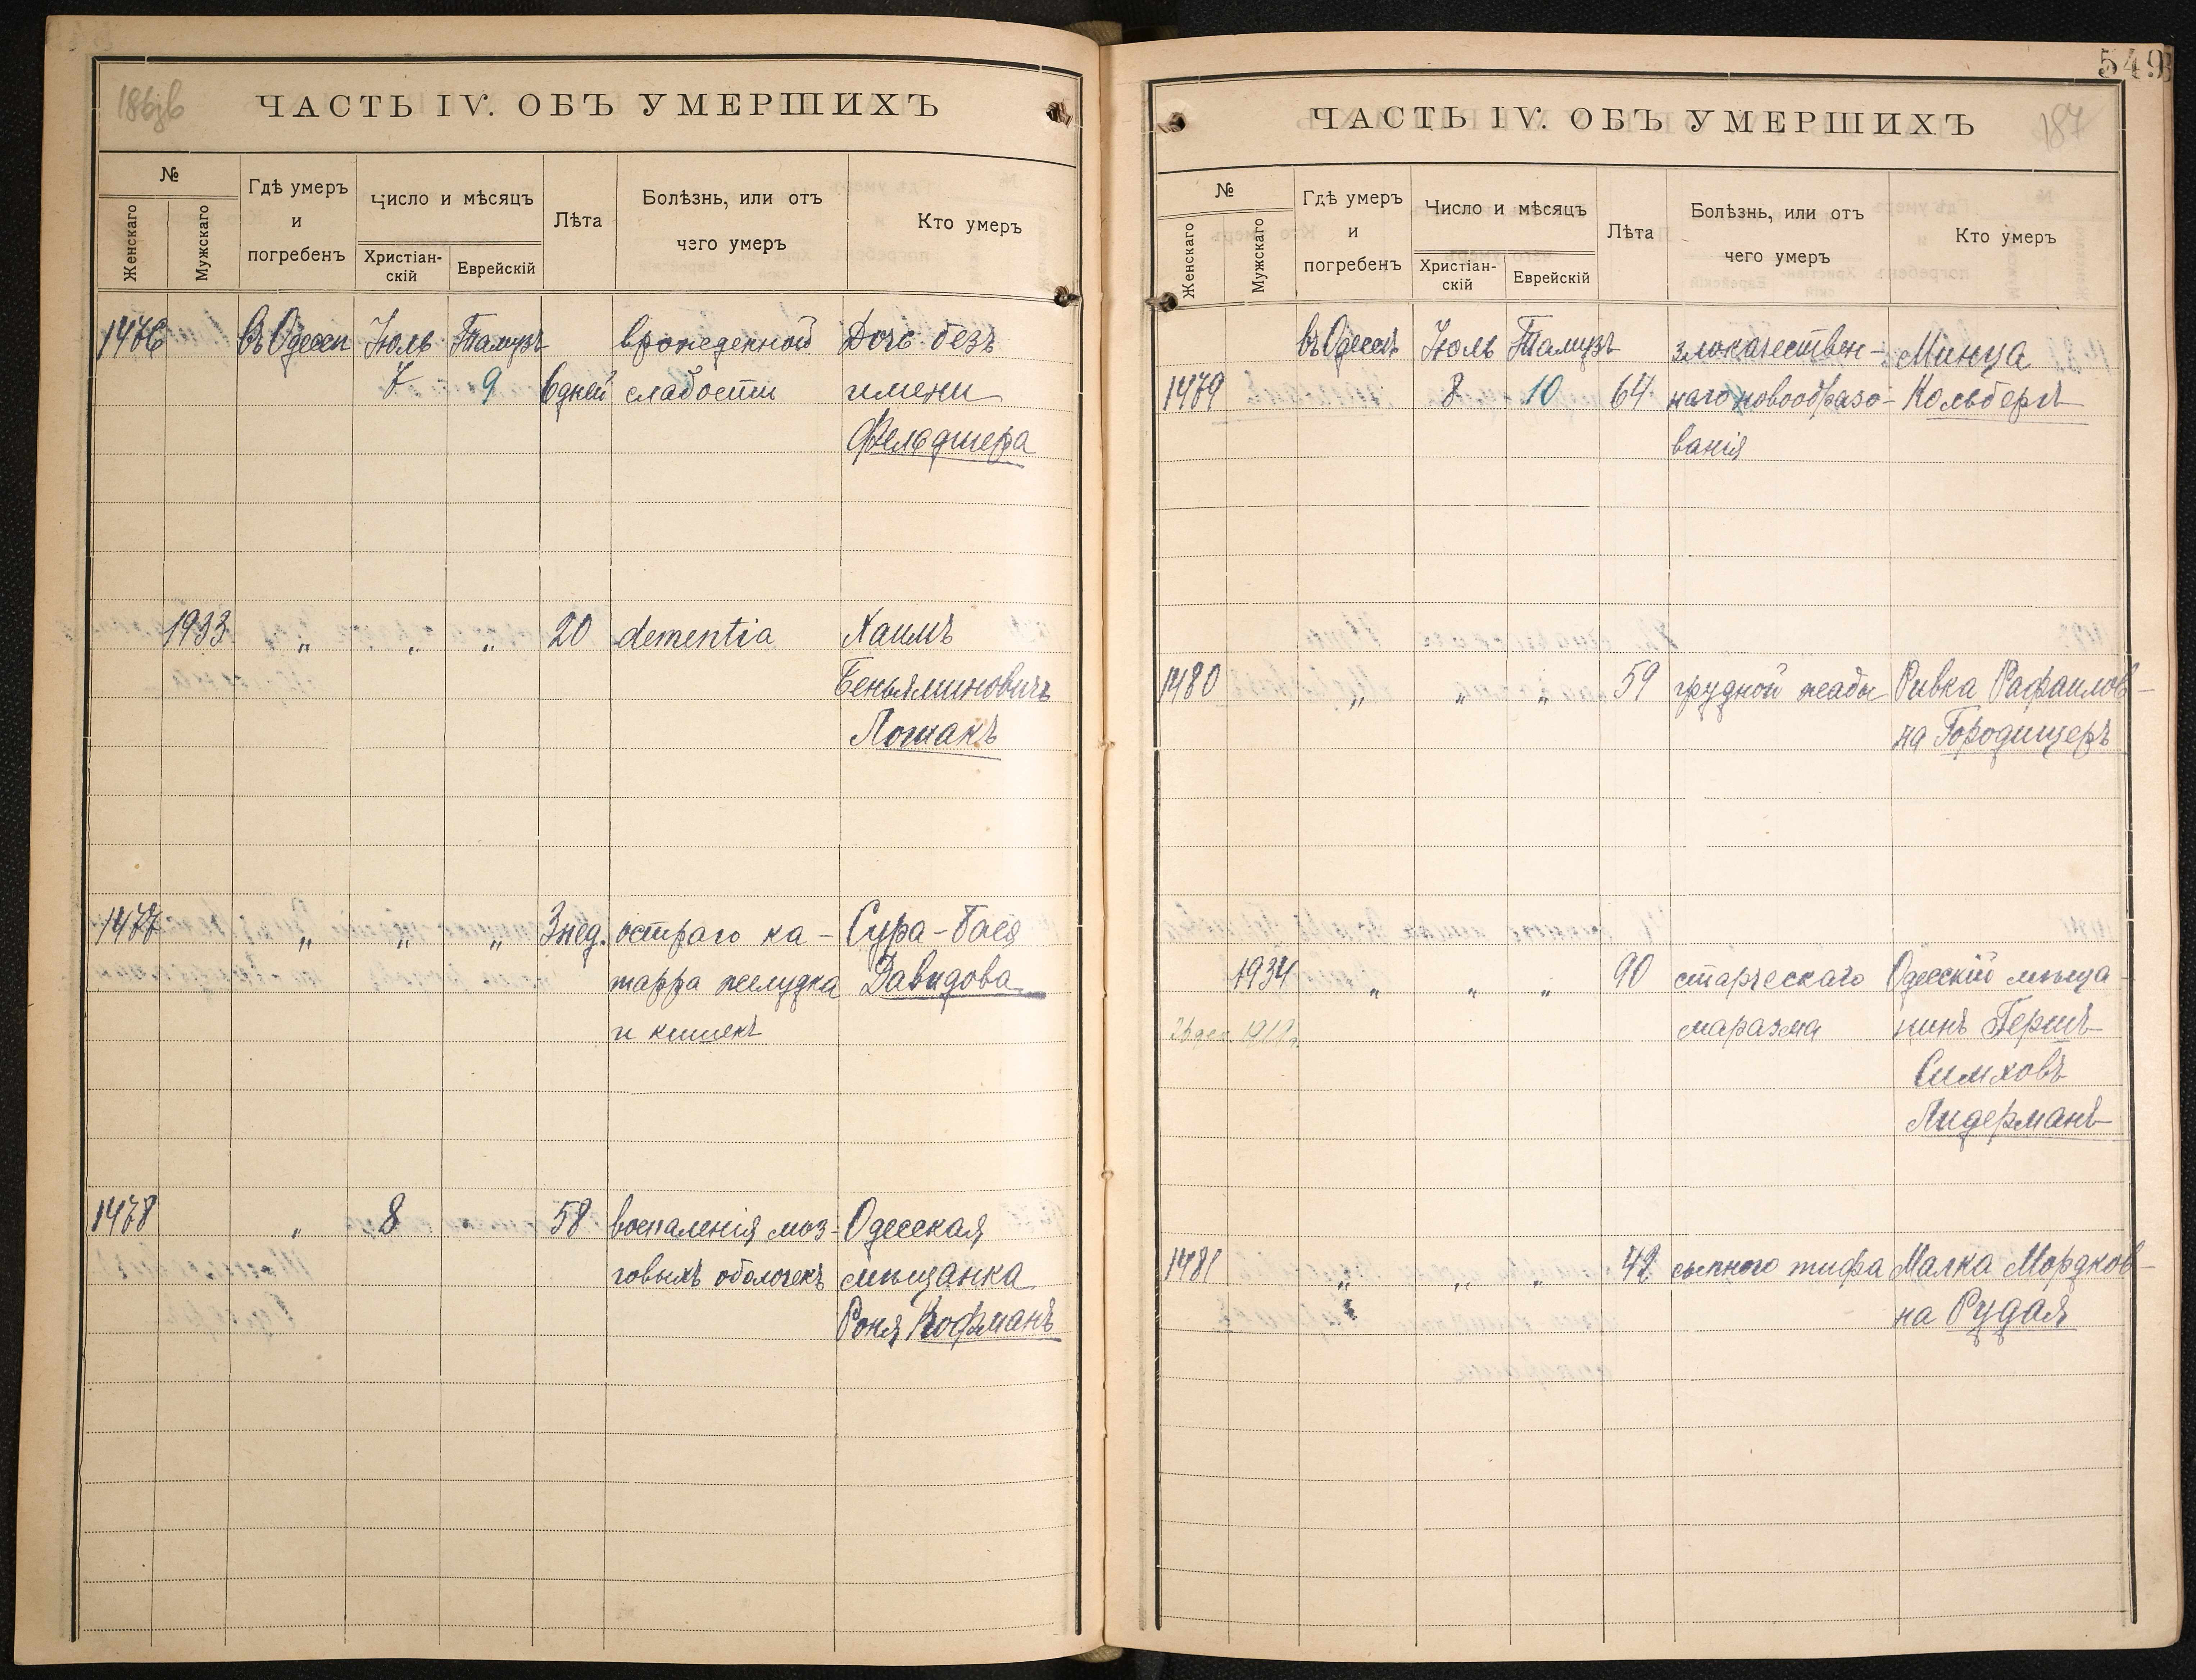 186зв
ЧАСТЬ IV. ОБЪ УМЕРШИХЪ
№
Женскаго
Мужскаго
Гдѣ умеръ
и
погребенъ
Число и мѣсяцъ
Христіан-
скій
Еврейскій
Лѣта
Болѣзнь, или отъ
чего умеръ
Кто умеръ
1476 въ Одессѣ Іюль Тамузъ врожденной Дочь безъ
7 9 6 дней слабости имени
Фельдшера
1933 „ „ „ 20 dementia Хаимъ
Беньяминовичъ
Лошакъ
1477 „ „ „ 3 нед. остраго ка- Сура-Бася
тарра желудка Давидова
и кишекъ
1478 „ 8 58 воспаленія моз- Одесская
говыхъ оболочекъ мѣщанка
Роня Кофманъ
549
187
ЧАСТЬ IV. ОБЪ УМЕРШИХЪ
№
Женскаго
Мужскаго
Гдѣ умеръ
и
погребенъ
Число и мѣсяцъ
Христіан-
скій
Еврейскій
Лѣта
Болѣзнь, или отъ
чего умеръ
Кто умеръ
въ Одессѣ Іюль Тамузъ злокачествен- Минца
1479 8 10 64 наго новообразо- Кольбергъ
ванія
1480 „ „ „ 59 грудной жабы Ривка Рафаилов-
на Городищеръ
1934 „ „ „ 90 старческаго Одесскій мѣща-
1919 г. маразма нинъ Гершъ
Симховъ
Лидерманъ
1481 „ „ „ 42 сыпного тифа Малка Мордков-
на Рудая